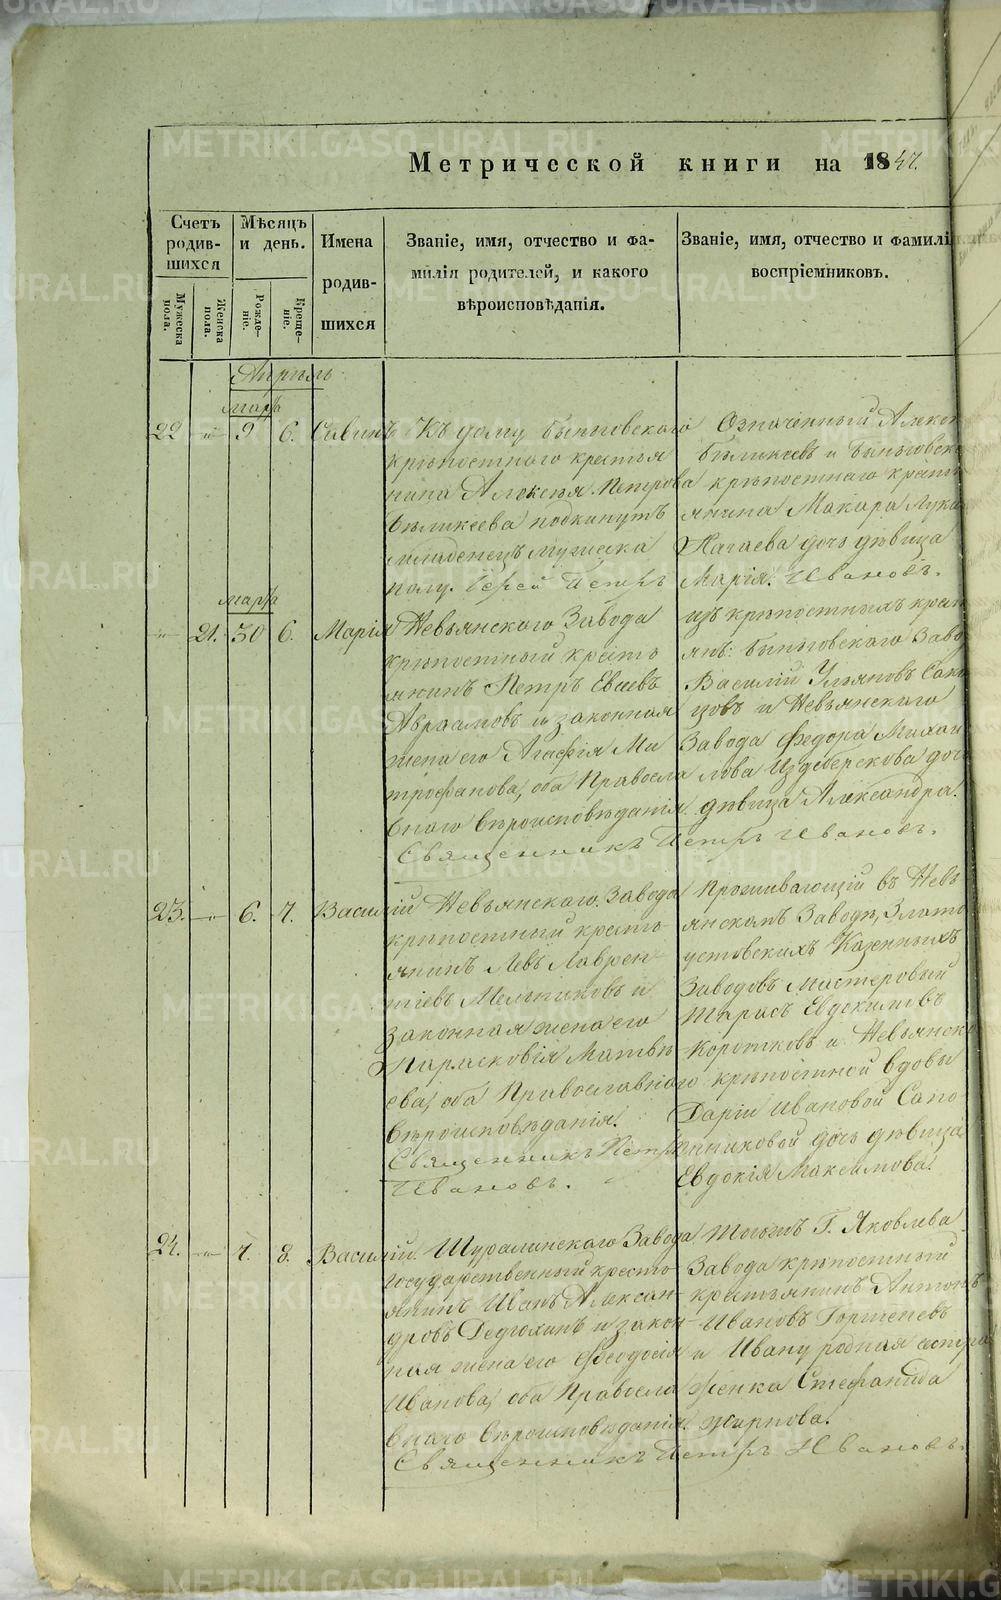 Метрической книги на 1847.
Счетъ родив-шихся
Мѣсяцъ и день.
Имена родив-шихся
Званіе, имя, отчество и фа-
милія родителей, и какого
вѣроисповѣданія.
Званіе, имя, отчество и фамилі
воспріемниковъ.
Мужеска пола.
Женска пола.
Рожде-ніе.
Креще-ніе.
Апрѣль
март
22 " 9 6. Савинъ
Къ дому Быньговскаго
крѣпостнаго крестья
нина Алексѣя Петрова
Бѣликеева подкинутъ
младенецъ мужеска
полу. Іерей Петръ Ивановъ.
Означенный Алек
Бѣликеевъ и Быньговска
крѣпостнаго крест
янина Макара Лука
Нагаева дочь дѣвица
Марія.
март
" 21. 30 6. Марія
Невьянскаго Завода
крѣпостный кресть
янинъ Петръ Евсеевъ
Авраамовъ и законная
жена его Агафія Ми
трофанова, оба Правосла
внаго вѣроисповѣданія.
Священникъ Петръ Ивановъ.
изъ крѣпостныхъ крест
янъ: Быньговскаго Заво
Василій Ульяновъ
цовъ и Невьянскаго
Завода Федора Михаи
лова дочь
дѣвица Александра.
23. " 6. 7. Василій
Невьянскаго Завода
крѣпостный кресть-
янинъ Левъ Лаврен-
тіевъ Мельниковъ и
законная жена его
Парасковія Матвѣ
ева, оба Православнаго
вѣроисповѣданія.
Священникъ Петръ
Ивановъ.
Проживающій въ Невь
янскомъ Заводѣ, Злато
устовскихъ Казенныхъ
Заводовъ Мастеровый
Тарасъ Евдокимовъ
Коротковъ и Невьянско
крѣпостной вдовы
Дарьи Ивановой Сапо
жниковой дочь дѣвица
Евдокія Максимова.
24. " 7. 8. Василій.
Шуралинскаго Завода
государственный кресть-
янинъ Иванъ Алексан-
дровъ Дедюхинъ и закон-
ная жена его Феодосія
Иванова, оба Правосла
внаго вѣроисповѣданія.
Священникъ Петръ Ивановъ.
Тогожъ Г. Яковлева
Завода крѣпостный
крестьянинъ Антонъ
Ивановъ
и Ивану родная сестра
женка Стефанида
Жирнова.